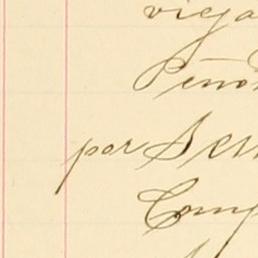 vieja
Peño
por Ser
Comp